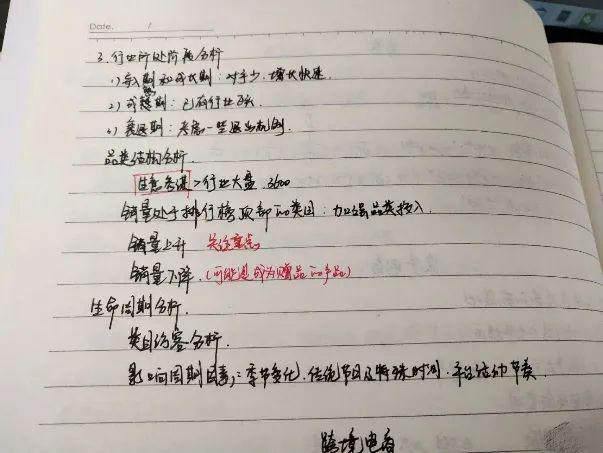 Date. /
3.行业所处阶段分析
1)导入期和成长期:对手少,增长快速.
2)成熟期:已有行业巨头
4)衰退期:考虑一些退出机制.
品类结构分析.
生意参谋>行业大盘.3600
销量处于排行榜顶部的类目:加强品类投入.
销量上升 关注重点
销量下降.(可能是成为赠品的产品)
生命周期分析.
类目访客分析.
影响周期因素:季节变化.传统节日及特殊时间.平台活动节奏.
跨境电商